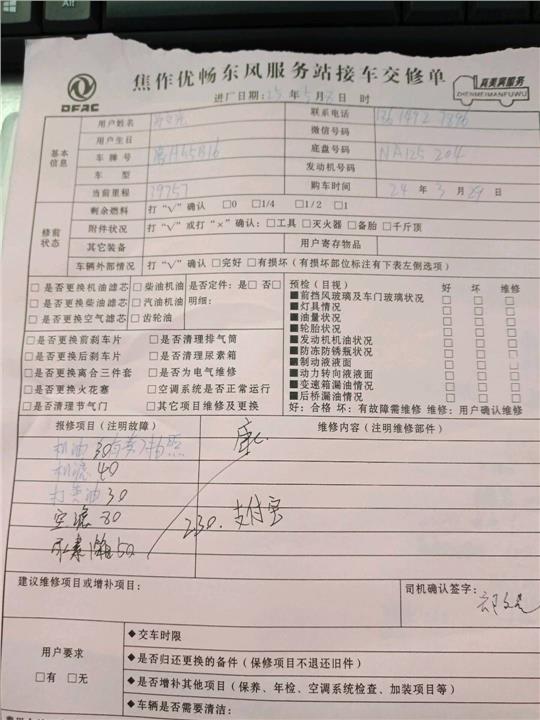 DFAC
焦作优畅东风服务站接车交修单
真美满服务
ZHENMEIMANFUWU
进厂日期: 年 月 日 时
用户姓名 联系电话
基本信息
用户生日 微信号码
车牌号 底盘号码 NA125 204
车型 发动机号码
当前里程 19757 购车时间 24 年 3 月 29 日
修前状态
剩余燃料 打“√”确认 □0 □1/4 □1/2 □1
附件状况 打“√”或打“×”确认：□工具 □灭火器 □备胎 □千斤顶
其它装备 用户寄存物品
车辆外部情况 打“√”确认 □完好 □有损坏（有损坏部位标注有下表左侧选项）
□是否更换机油滤芯 □柴油机油 是否定件：是□ 否□
□是否更换柴油滤芯 □汽油机油 明细：
□是否更换空气滤芯 □齿轮油
□是否更换前刹车片 □是否清理排气筒
□是否更换后刹车片 □是否清理尿素箱
□是否更换离合三件套 □是否为电气维修
□是否更换火花塞 □空调系统是否正常运行
□是否清理节气门 □其它项目维修及更换
预检（目视） 好 坏 维修
■前挡风玻璃及车门玻璃状况 □ □ □
■灯具情况 □ □ □
■油量状况 □ □ □
■轮胎状况 □ □ □
■发动机机油状况 □ □ □
■防冻防锈瓶状况 □ □ □
■制动液液面 □ □ □
■动力转向液液面 □ □ □
■变速箱漏油情况 □ □ □
■后桥漏油情况 □ □ □
好：合格 坏：有故障需维修 维修：用户确认维修
报修项目（注明故障） 维修内容（注明维修部件）
机油 30
机滤 40
打黄油 30
空滤 80
230. 支付宝
尿素箱 50
建议维修项目或增补项目： 司机确认签字：
用户要求
□有 □无
◆交车时限
◆是否归还更换的备件（保修项目不退还旧件）
◆是否增补其他项目（保养、年检、空调系统检查、加装项目等）
◆车辆是否需要清洁：